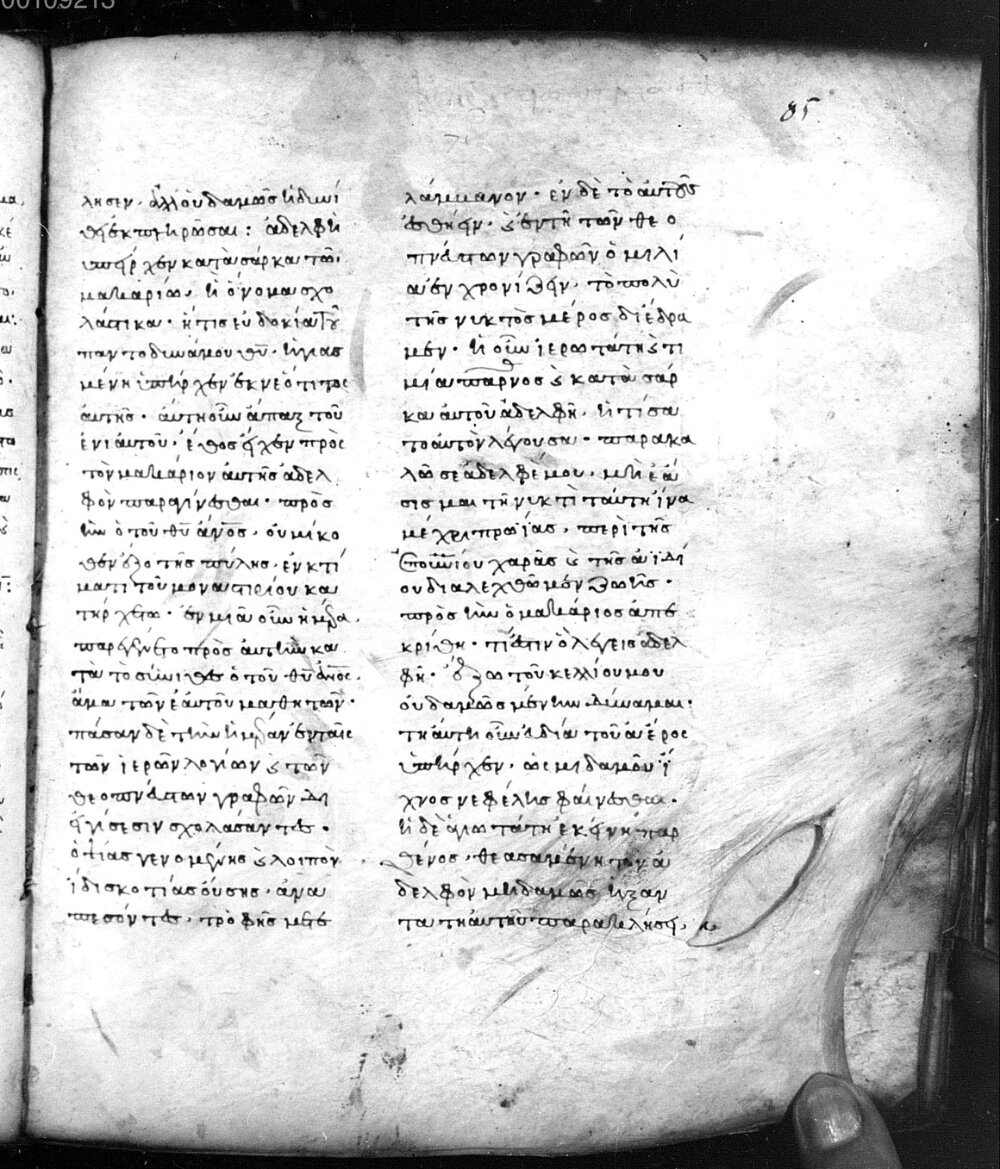 00109213
85
λησεν· ἀλλ' οὐδαμῶς ἠδυνή
θη ἐκπληρῶσαι: ἀδελφὴ
ὑπῆρχεν κατὰ σάρκα τῶ
μακαρίω, ἧ ὄνομα σχο
λάστικα· ἥτις εὐδοκία τοῦ
παντοδυνάμου θυ, ἡγιασ
μένη ὑπῆρχεν ἐκ νεότητος
αὐτῆς· αὐτη οὖν ἅπαξ τοῦ
ἐνιαυτοῦ, ἔθος εἶχεν πρὸς
τὸν μακάριον αὐτῆς ἀδελ
φὸν παραγίνεσθαι· πρὸς
ἣν ὁ τοῦ θυ ἀνος, οὐ μικό
θεν ἔξο τῆς πύλης, ἐν κτί
ματι τοῦ μοναστιρίου κα
τήρχετω· ἐν μιᾶ οὖν ἡμέρα,
παρεγένετο πρὸς αὐτὴν κα
τὰ τὸ σύνιθες ὁ τοῦ θυ ἀνος,
ἅμα τῶν ἑαυτοῦ μαθητῶν·
πᾶσαν δὲ τὴν ἡμέραν ἐν ταῖς
τῶν ἱερῶν λογίων καὶ τῶν
θεοπνεύστων γραφῶν δι
ηγίσεσιν σχολάσαντες·
ὀψίας γενομένης καὶ λοιπὸν
ἴδι σκοτιασούσης, ἀνα
πεσόντες, τροφῆς μετε
λάμμανον· ἐν δὲ τὸ αὐτοὺς
ἐσθήειν· καὶ ἐν τῆ τῶν θεο
πνεύστων γραφῶν ὁμιλί
α ἐνχρονίζειν, τὸ πολὺ
τῆς νυκτὸς μέρος διέδρα
μεν· ἡ οὖν ἱερωτάτη καὶ τι
μία παρθένος καὶ κατὰ σάρ
κα αὐτοῦ ἀδελφὴ, ἠτίσα
το αὐτὸν λέγουσα· παρακα
λῶ σε ἀδελφέ μου, μὴ ἐά
σις μαι τῆ νυκτὶ ταύτη ἵνα
μέχρι πρωΐας, περὶ τῆς
ἐπουνίου χαρᾶς καὶ τῆς ἀϊδί
ου διαλεχθῶμεν ζωῆς·
πρὸς ἣν ὁ μακάριος ἀπε
κρίθη· τί ἐστιν ὃ λέγεις ἀδελ
φή· ἔξω τοῦ κελλίου μου
οὐδαμῶς μένειν δύναμαι·
τηαύτη οὖν εὐδία τοῦ ἀέρος
ὑπῆρχεν, ὡς μιδαμοῦ ἴ
χνος νεφέλης φαίνεσθαι·
ἡ δὲ ἁγιωτάτη ἐκείνη παρ
θένος, θεασαμένη τον ἀ
δελφὸν μηδαμῶς ἥξαν
τα τῆ αὐτῆς παρακλήσει,